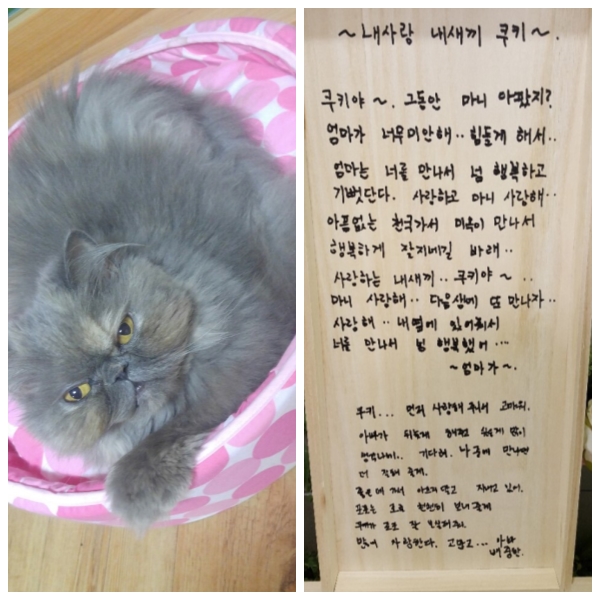 ~내사랑 내새끼 쿠키~.
쿠키야~. 그동안 마니 아팠지?
엄마가 너무미안해.. 힘들게 해서..
엄마는 너를 만나서 넘 행복하고
기뻣단다. 사랑하고 마니 사랑해..
아픔없는 천국가서 미옥이 만나서
행복하게 잘지내길 바래..
사랑하는 내새끼..쿠키야~..
마니 사랑해.. 다음생에 또 만나자..
사랑해.. 내옆에 있어줘서
너를 만나서 넘 행복했어...
~엄마가~.
쿠키... 먼저 사랑해 줘서 고마워.
아빠가
기다려. 나중에 만나면
더 잘해 줄게.
좋은데 가서 아프지말고 지내고 있어.
천천히 보내줄게
사랑한다. 고맙고... 아빠